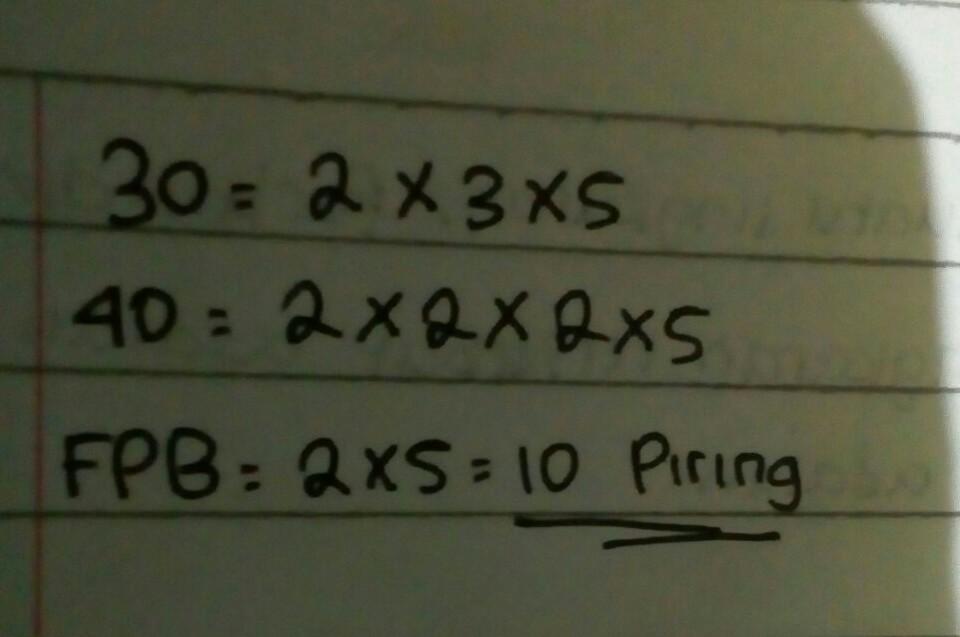 30 = 2 x 3 x 5
40 = 2 x 2 x 2 x 5
FPB = 2 x 5 = 10 Piring